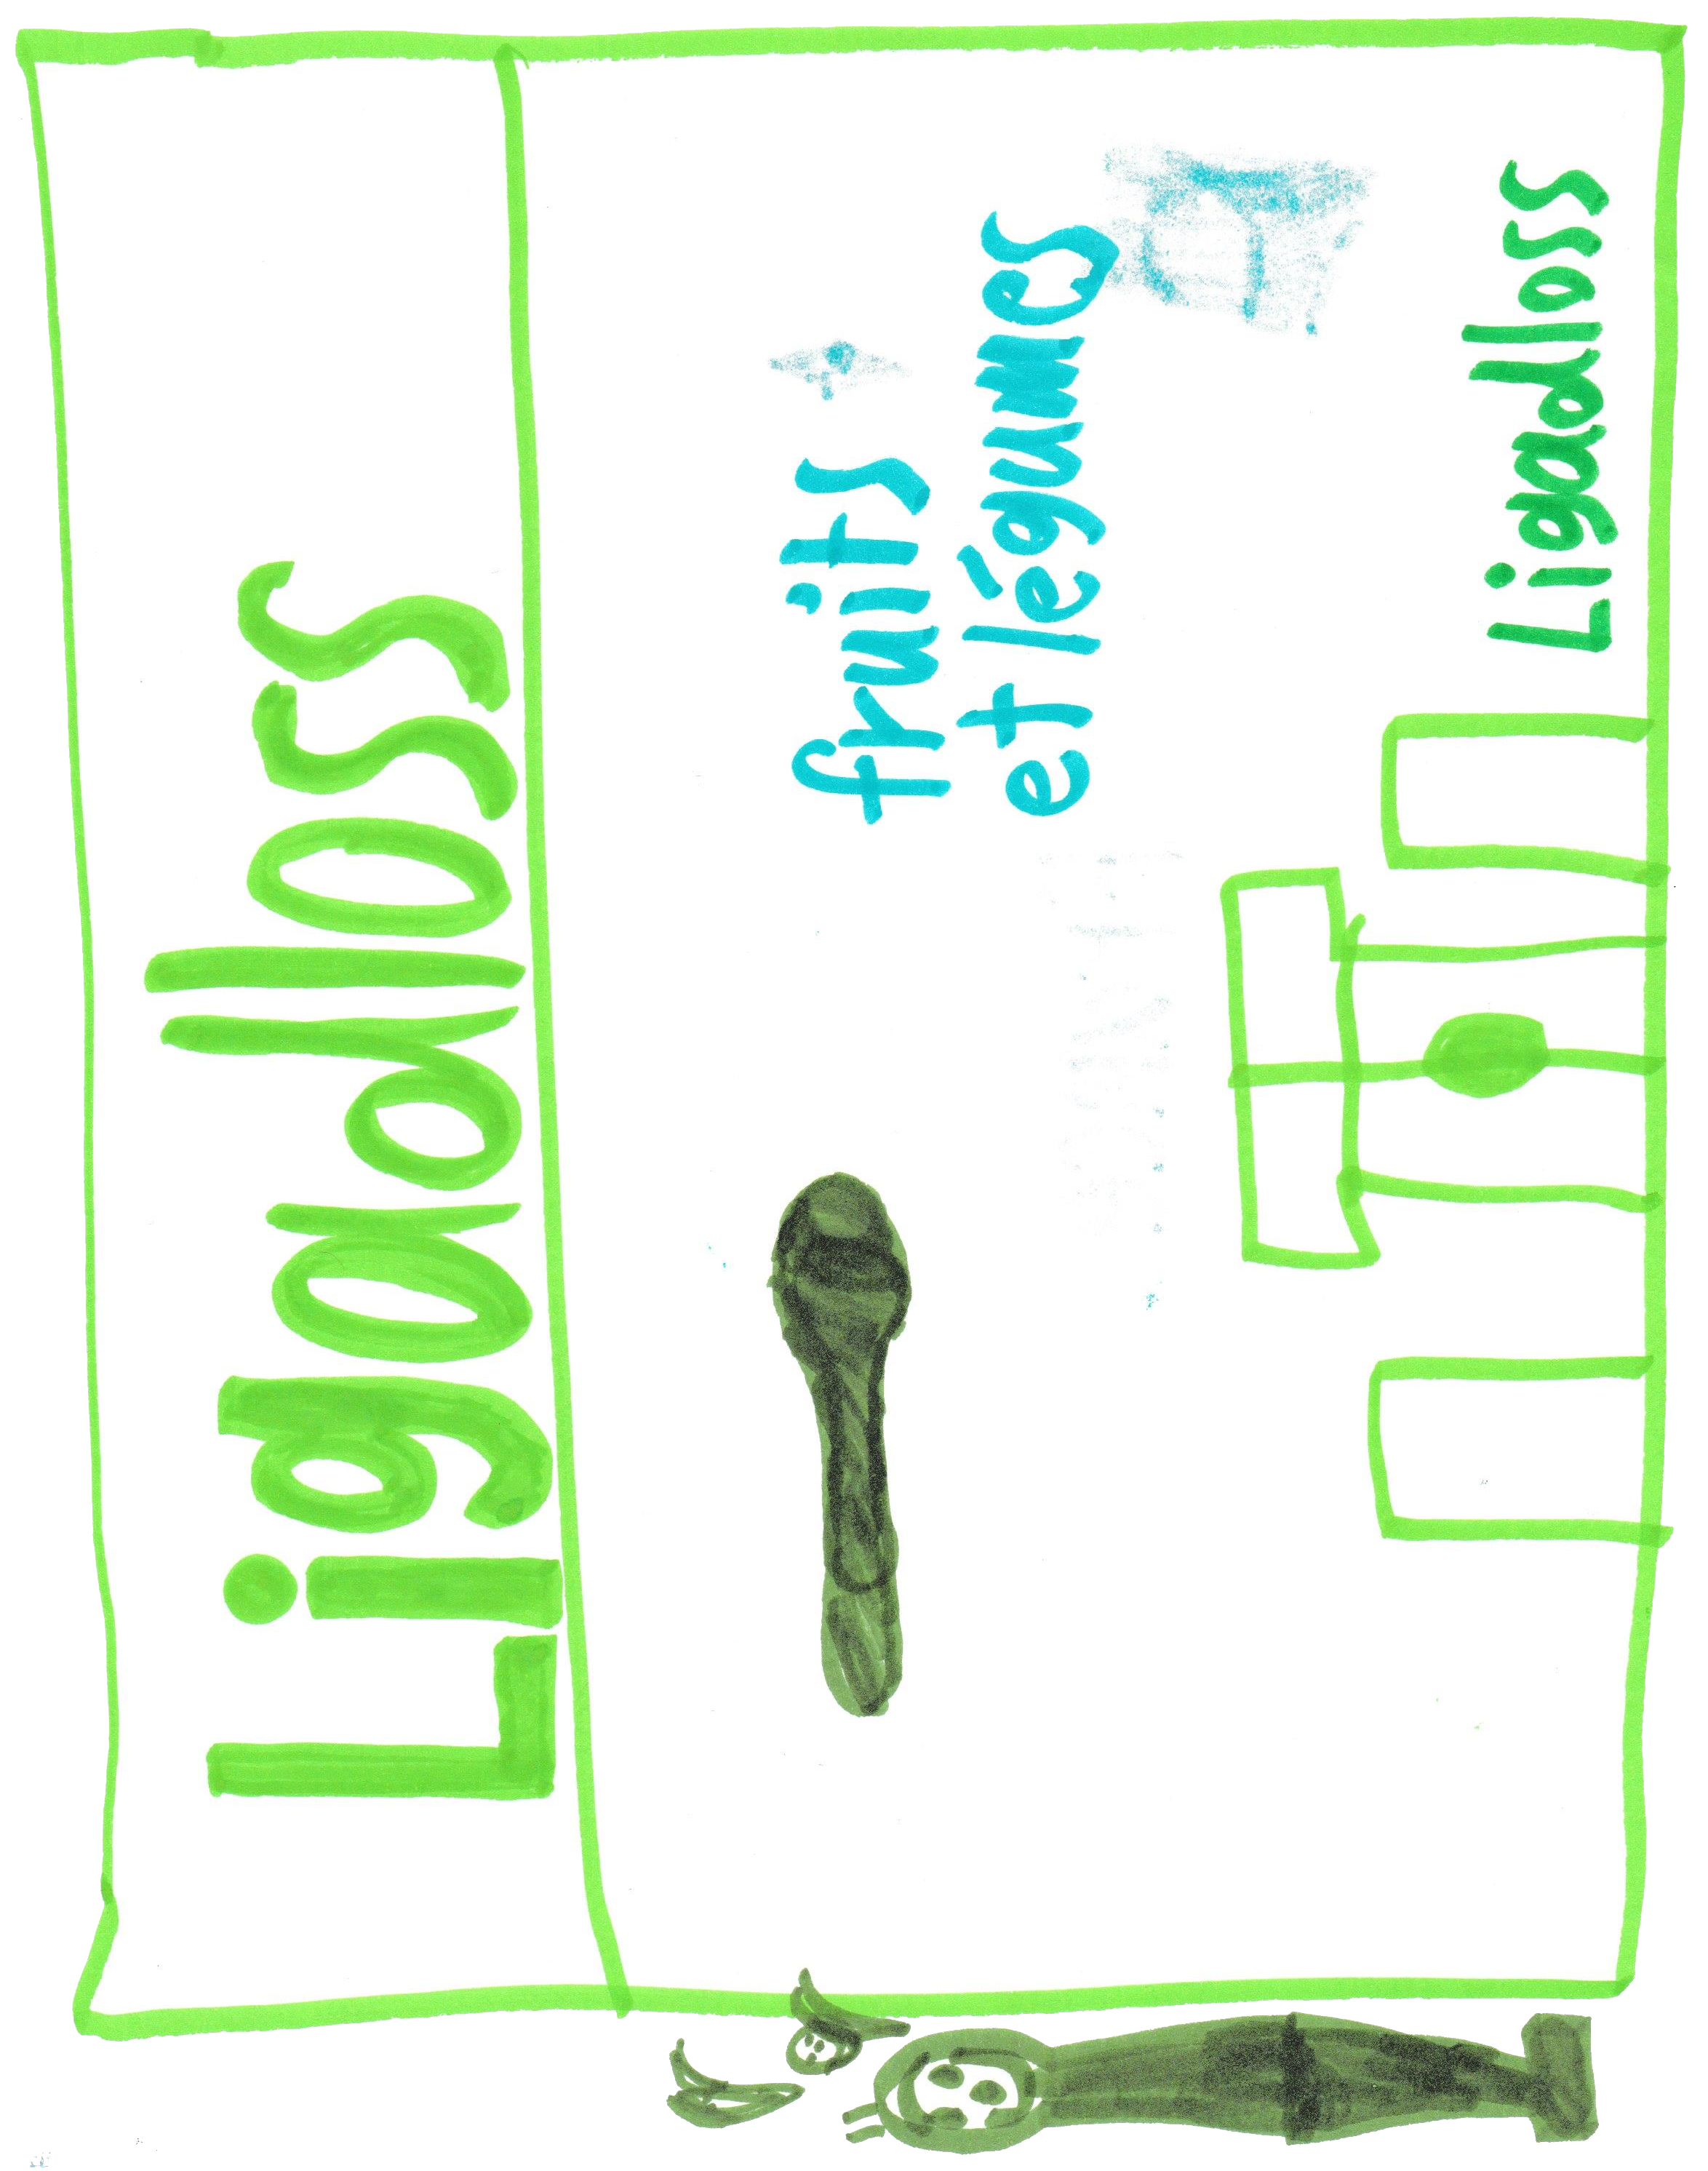 Ligadloss
fruits
et légumes
Ligadloss